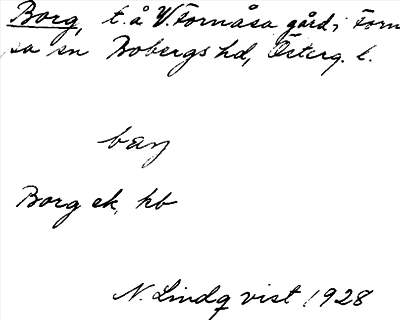 Borg, t. å V. Fornåsa gård, i Forn
sa sn Bobergs hd, Österg. l.
Borg ek, hb
N. Lindqvist 1928